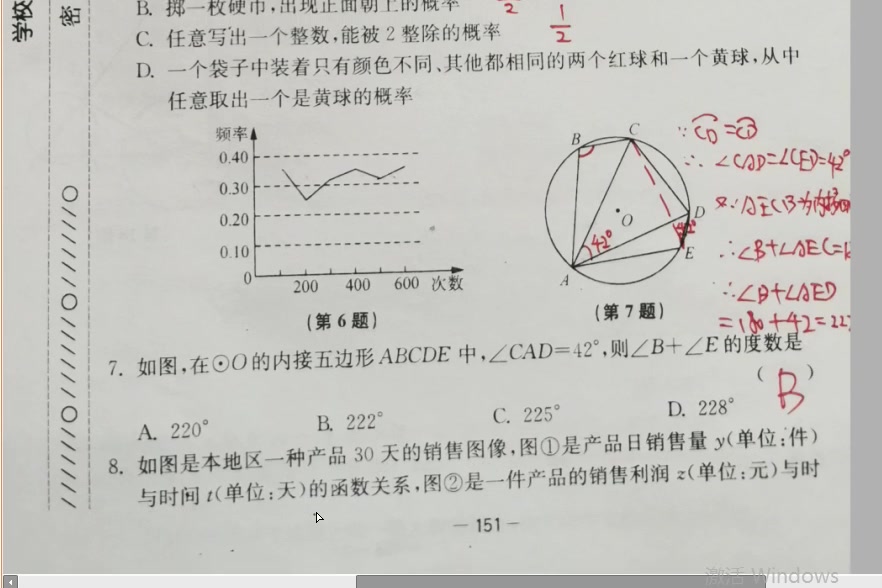 学校
密
B. 掷一枚硬币,出现正面朝上的概率
1/2
C. 任意写出一个整数,能被2整除的概率
1/2
D. 一个袋子中装着只有颜色不同、其他都相同的两个红球和一个黄球,从中
任意取出一个是黄球的概率
频率
0.40
0.30
0.20
0.10
0
200 400 600 次数
(第6题)
B
C
O
D
E
A
42°
(第7题)
∴ ∠CAD=∠CED=42°
∴∠B+∠AEC=1
∴∠B+∠AED
=180+42=222
7. 如图,在⊙O的内接五边形ABCDE中,∠CAD=42°,则∠B+∠E的度数是
( B )
A. 220° B. 222° C. 225° D. 228°
8. 如图是本地区一种产品30天的销售图像,图①是产品日销售量y(单位:件)
与时间t(单位:天)的函数关系,图②是一件产品的销售利润z(单位:元)与时
— 151 —
激活 Windows